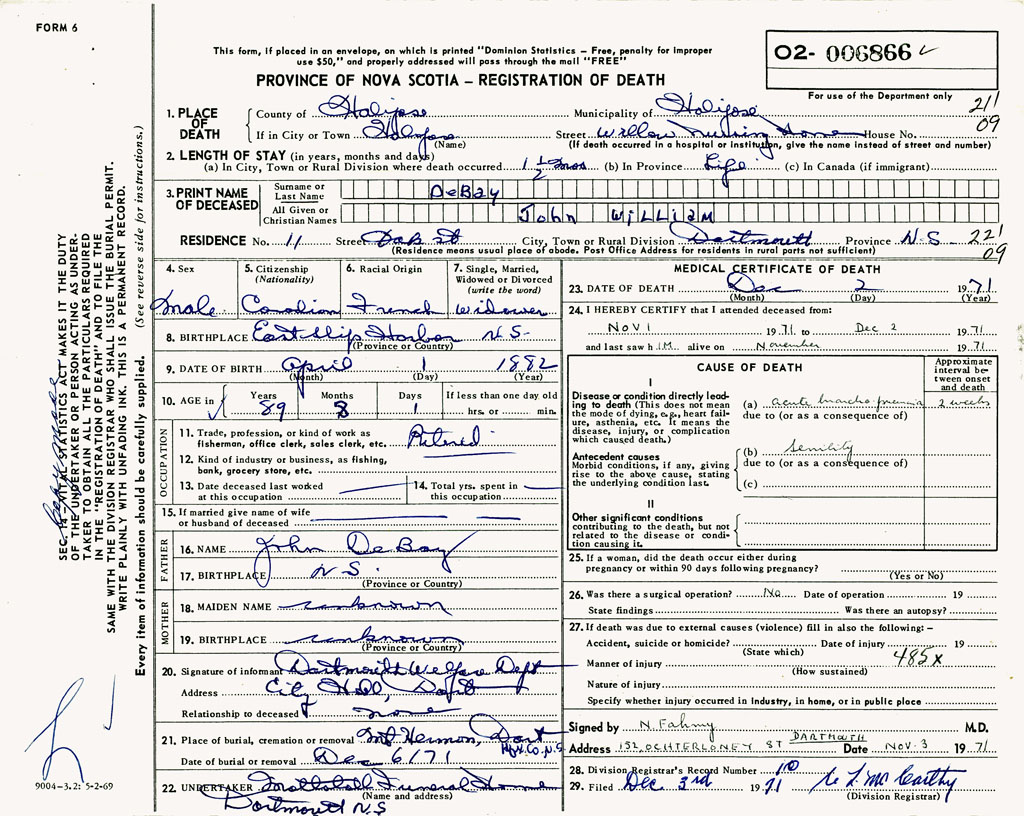 FORM 6
This form, if placed in an envelope, on which is printed "Dominion Statistics – Free, penalty for improper
use $50," and properly addressed will pass through the mail "FREE"
PROVINCE OF NOVA SCOTIA – REGISTRATION OF DEATH
02- 006866
For use of the Department only
211
09
1. PLACE OF DEATH
County of Halifax Municipality of Halifax
If in City or Town Halifax Street Willow Nursing Home House No.
(Name) (If death occurred in a hospital or institution, give the name instead of street and number)
2. LENGTH OF STAY (in years, months and days)
(a) In City, Town or Rural Division where death occurred 1 1/2 mos (b) In Province Life (c) In Canada (if immigrant)
3. PRINT NAME OF DECEASED
Surname or Last Name DeBAY
All Given or Christian Names JOHN WILLIAM
RESIDENCE No. 11 Street Oak St City, Town or Rural Division Dartmouth Province N.S 221
09
(Residence means usual place of abode. Post Office Address for residents in rural parts not sufficient)
4. Sex
Male
5. Citizenship (Nationality)
Canadian
6. Racial Origin
French
7. Single, Married, Widowed or Divorced (write the word)
Widower
8. BIRTHPLACE East Ship Harbor N.S.
(Province or Country)
9. DATE OF BIRTH April 1 1882
(Month) (Day) (Year)
10. AGE in Years Months Days If less than one day old
89 8 1 hrs. or min.
OCCUPATION
11. Trade, profession, or kind of work as
fisherman, office clerk, sales clerk, etc. Retired
12. Kind of industry or business, as fishing,
bank, grocery store, etc.
13. Date deceased last worked
at this occupation
14. Total yrs. spent in
this occupation
15. If married give name of wife
or husband of deceased
FATHER
16. NAME John De Bay
17. BIRTHPLACE N.S.
(Province or Country)
MOTHER
18. MAIDEN NAME unknown
19. BIRTHPLACE unknown
(Province or Country)
20. Signature of informant Dartmouth Welfare Dept
Address City Hall, Dart
Relationship to deceased none
21. Place of burial, cremation or removal Mt Hermon, Dart
Hfx. Co. N.S.
Date of burial or removal Dec 6/71
22. UNDERTAKER Mattatall Funeral Home
(Name and address)
Dartmouth N.S
MEDICAL CERTIFICATE OF DEATH
23. DATE OF DEATH Dec 2 1971
(Month) (Day) (Year)
24. I HEREBY CERTIFY that I attended deceased from:
Nov 1 1971 to Dec 2 1971
and last saw him alive on November 1971
CAUSE OF DEATH
Approximate interval between onset and death
I
Disease or condition directly leading to death (This does not mean the mode of dying, e.g., heart failure, asthenia, etc. It means the disease, injury, or complication which caused death.)
(a) acute broncho pneumonia 2 weeks
due to (or as a consequence of)
Antecedent causes
Morbid conditions, if any, giving rise to the above cause, stating the underlying condition last.
(b) senility
due to (or as a consequence of)
(c)
II
Other significant conditions
contributing to the death, but not related to the disease or condition causing it.
25. If a woman, did the death occur either during
pregnancy or within 90 days following pregnancy?
(Yes or No)
26. Was there a surgical operation? No Date of operation 19
State findings Was there an autopsy?
27. If death was due to external causes (violence) fill in also the following: –
Accident, suicide or homicide? Date of injury 19
(State which)
485X
Manner of injury
(How sustained)
Nature of injury
Specify whether injury occurred in industry, in home, or in public place
Signed by N. Fahmy M.D.
Address 152 OCHTERLONEY ST DARTMOUTH Date NOV. 3 1971
28. Division Registrar's Record Number 110
29. Filed Dec 3rd 1971
(Division Registrar)
SEC. 14 – VITAL STATISTICS ACT MAKES IT THE DUTY
OF THE UNDERTAKER OR PERSON ACTING AS UNDER-
TAKER TO OBTAIN ALL THE PARTICULARS REQUIRED
IN THE "REGISTRATION OF DEATH" AND TO FILE THE
SAME WITH THE DIVISION REGISTRAR WHO SHALL ISSUE THE BURIAL PERMIT.
WRITE PLAINLY WITH UNFADING INK. THIS IS A PERMANENT RECORD.
Every item of information should be carefully supplied. (See reverse side for instructions.)
9004-3.2: 5-2-69